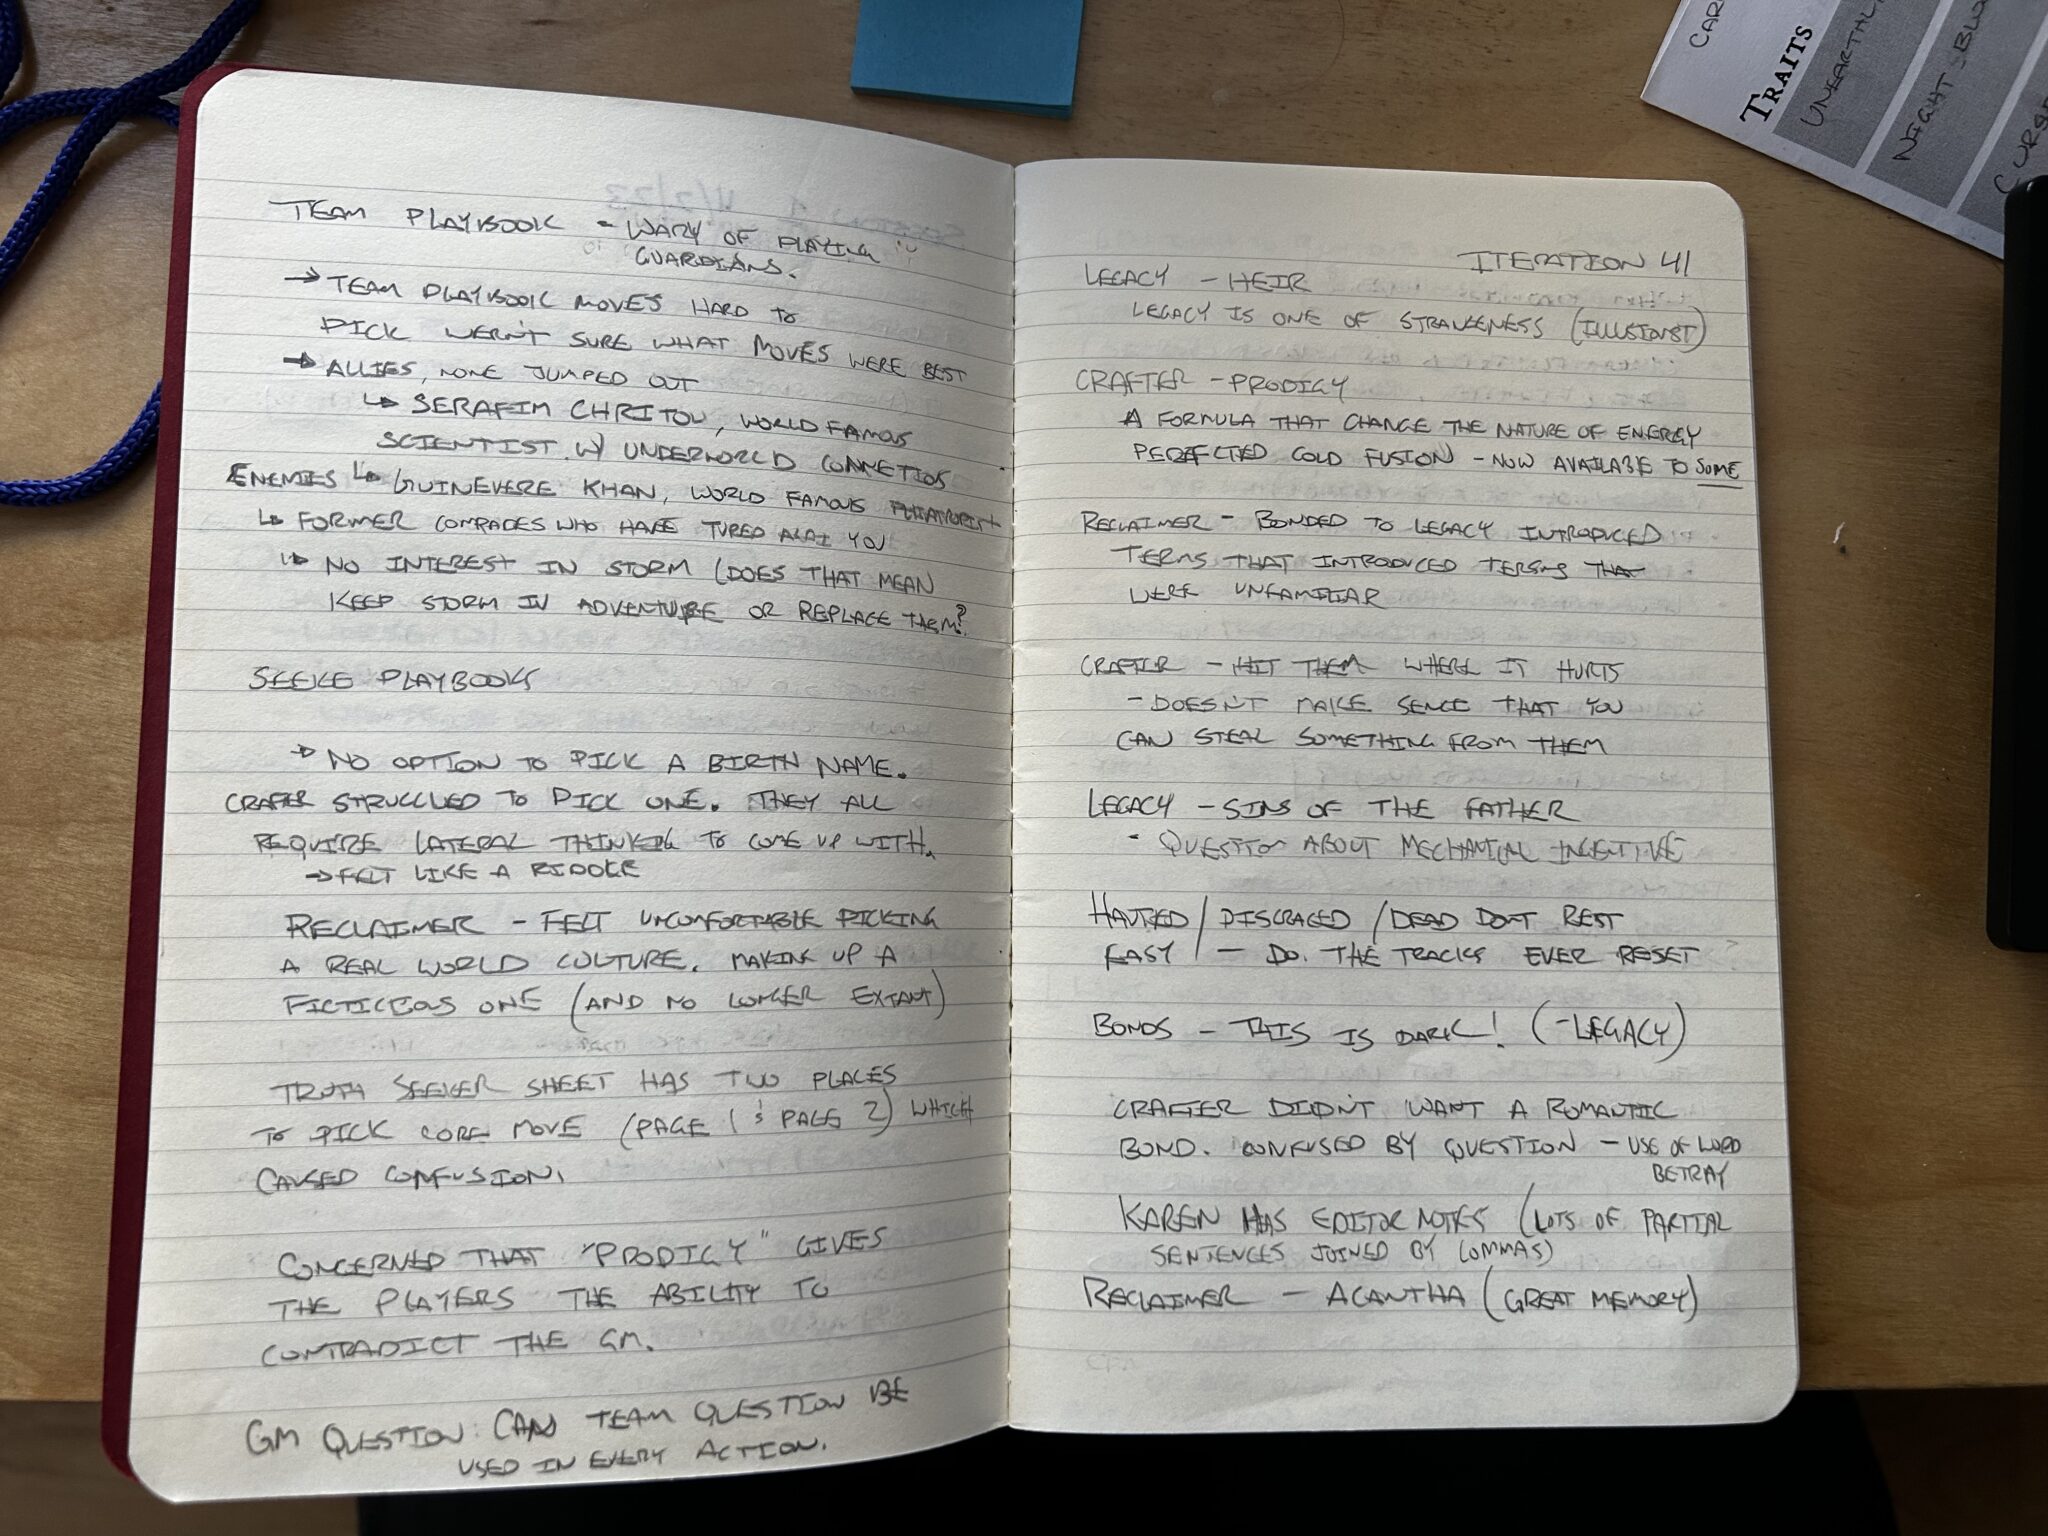 TEAM PLAYBOOK - WARY OF PLAYING
GUARDIANS.
→ TEAM PLAYBOOK MOVES HARD TO
PICK WERN'T SURE WHAT MOVES WERE BEST
→ ALLIES, NONE JUMPED OUT
↳ SERAFIM CHRITOU, WORLD FAMOUS
SCIENTIST W/ UNDERWORLD CONNETIOS
ENEMIES ↳ GUINEVERE KHAN, WORLD FAMOUS
↳ FORMER COMRADES WHO HAVE TURED AGAI YOU
↳ NO INTEREST IN STORM (DOES THAT MEAN
KEEP STORM IN ADVENTURE OR REPLACE THEM?
SEEKE PLAYBOOKS
→ NO OPTION TO PICK A BIRTH NAME.
CRAFTER STRUGGLED TO PICK ONE. THEY ALL
REQUIRE LATERAL THINKING TO COME UP WITH.
→ FELT LIKE A RIDDLE
RECLAIMER - FELT UNCOMFORTABLE PICKING
A REAL WORLD CULTURE. MAKING UP A
FICTICIOUS ONE (AND NO LONGER EXTANT)
TRUTH SEEKER SHEET HAS TWO PLACES
TO PICK CORE MOVE (PAGE 1 & PAGE 2) WHICH
CAUSED CONFUSION.
CONCERNED THAT "PRODIGY" GIVES
THE PLAYERS THE ABILITY TO
CONTRADICT THE GM.
GM QUESTION: CAN TEAM QUESTION BE
USED IN EVERY ACTION.
ITERATION 41
LEGACY - HEIR
LEGACY IS ONE OF STRANGENESS (ILLUSIONIST)
CRAFTER - PRODIGY
A FORMULA THAT CHANGE THE NATURE OF ENERGY
PERFECTED COLD FUSION - NOW AVAILABLE TO SOME
RECLAIMER - BONDED TO LEGACY INTRODUCED
TERMS THAT INTRODUCED TERSMS THAT
WERE UNFAMILIAR
CRAFTER - HIT THEM WHERE IT HURTS
- DOESN'T MAKE SENCE THAT YOU
CAN STEAL SOMETHING FROM THEM
LEGACY - SINS OF THE FATHER
- QUESTION ABOUT MECHANICAL INCENTIVE
HAUTED / DISGRACED / DEAD DON'T REST
EASY / - DO. THE TRACKS EVER RESET
BONDS - THIS IS DARK! (-LEGACY)
CRAFTER DIDN'T WANT A ROMANTIC
BOND. CONFUSED BY QUESTION - USE OF WORD
BETRAY
KAREN HAS EDITOR NOTES (LOTS OF PARTIAL
SENTENCES JOINED BY COMMAS)
RECLAIMER - ACANTHA (GREAT MEMORY)
CAR
TRAITS
UNEARTHL
NIGHT BLO
CURSE